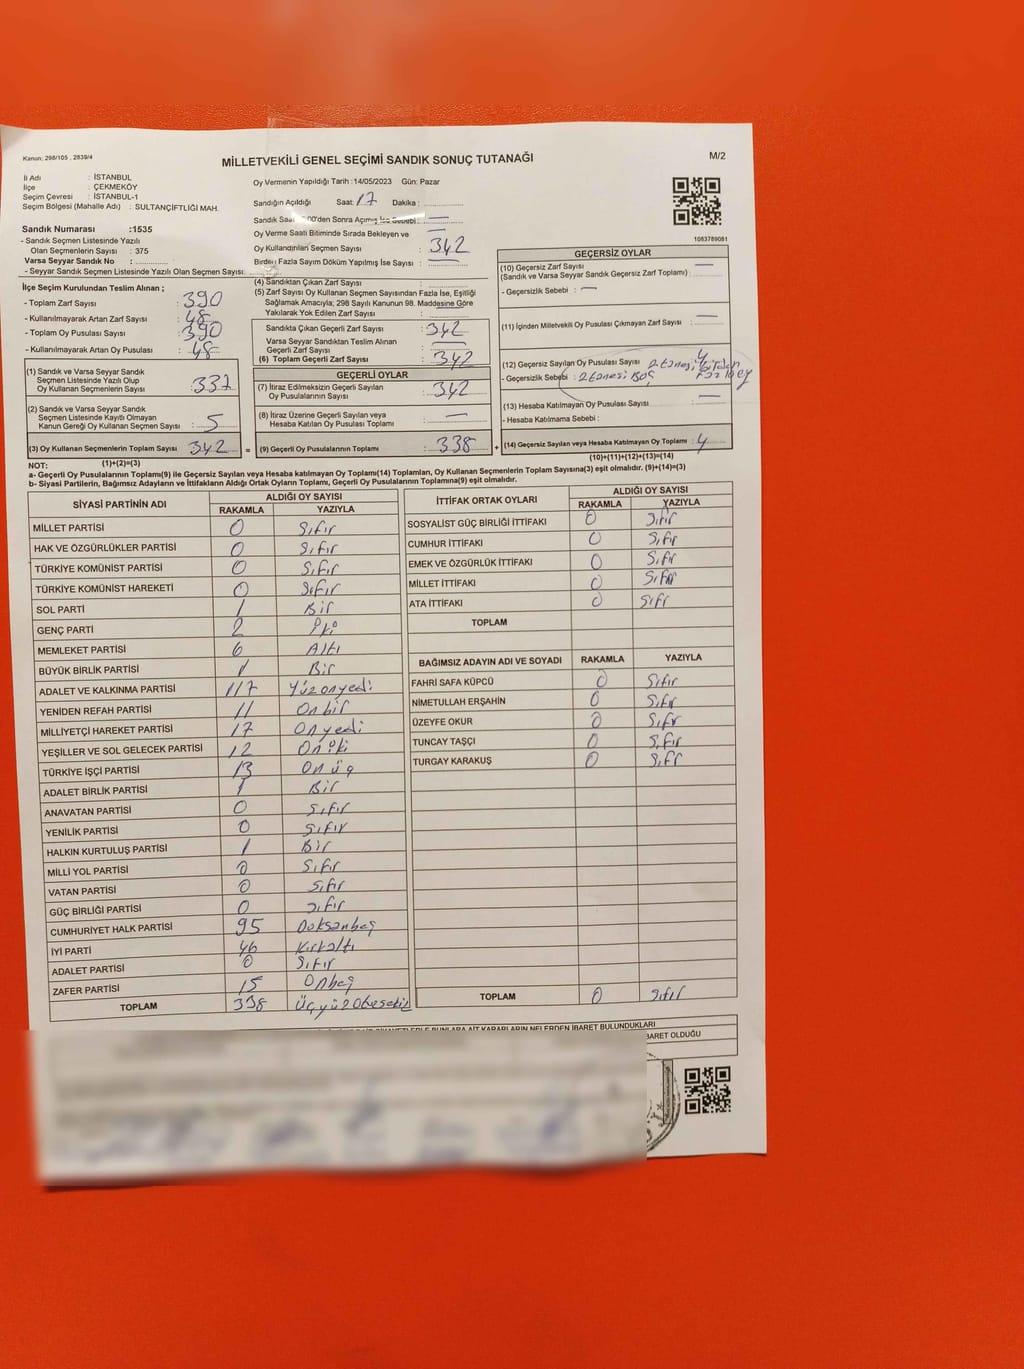 Kanun: 298/105 , 2839/4
MİLLETVEKİLİ GENEL SEÇİMİ SANDIK SONUÇ TUTANAĞI
M/2
İl Adı : İSTANBUL
İlçe : ÇEKMEKÖY
Seçim Çevresi : İSTANBUL-1
Seçim Bölgesi (Mahalle Adı) : SULTANÇİFTLİĞİ MAH.
Sandık Numarası :1535
- Sandık Seçmen Listesinde Yazılı
Olan Seçmenlerin Sayısı : 375
Varsa Seyyar Sandık No :
- Seyyar Sandık Seçmen Listesinde Yazılı Olan Seçmen Sayısı:
Oy Vermenin Yapıldığı Tarih :14/05/2023 Gün: Pazar
Sandığın Açıldığı Saat: 17 Dakika :
Sandık Saat 'den Sonra Açımış İse Sebebi : —
Oy Verme Saati Bitiminde Sırada Bekleyen ve
Oy Kullandırılan Seçmen Sayısı : 342
Birden Fazla Sayım Döküm Yapılmış İse Sayısı : —
1083789081
İlçe Seçim Kurulundan Teslim Alınan ;
- Toplam Zarf Sayısı : 390
- Kullanılmayarak Artan Zarf Sayısı : 48
- Toplam Oy Pusulası Sayısı : 390
- Kullanılmayarak Artan Oy Pusulası : 48
(1) Sandık ve Varsa Seyyar Sandık
Seçmen Listesinde Yazılı Olup
Oy Kullanan Seçmenlerin Sayısı : 337
(2) Sandık ve Varsa Seyyar Sandık
Seçmen Listesinde Kayıtlı Olmayan
Kanun Gereği Oy Kullanan Seçmen Sayısı : 5
(3) Oy Kullanan Seçmenlerin Toplam Sayısı 342 =
(1)+(2)=(3)
(4) Sandıktan Çıkan Zarf Sayısı :
(5) Zarf Sayısı Oy Kullanan Seçmen Sayısından Fazla İse, Eşitliği
Sağlamak Amacıyla; 298 Sayılı Kanunun 98. Maddesine Göre
Yakılarak Yok Edilen Zarf Sayısı : —
Sandıkta Çıkan Geçerli Zarf Sayısı : 342
Varsa Seyyar Sandıktan Teslim Alınan
Geçerli Zarf Sayısı : —
(6) Toplam Geçerli Zarf Sayısı : 342
GEÇERLİ OYLAR
(7) İtiraz Edilmeksizin Geçerli Sayılan
Oy Pusulalarının Sayısı : 342
(8) İtiraz Üzerine Geçerli Sayılan veya
Hesaba Katılan Oy Pusulası Toplamı : —
(9) Geçerli Oy Pusulalarının Toplamı : 338 +
GEÇERSİZ OYLAR
(10) Geçersiz Zarf Sayısı —
(Sandık ve Varsa Seyyar Sandık Geçersiz Zarf Toplamı) :
- Geçersizlik Sebebi : —
(11) İçinden Milletvekili Oy Pusulası Çıkmayan Zarf Sayısı : —
(12) Geçersiz Sayılan Oy Pusulası Sayısı : 4
2 tanesi birden fazla oy
- Geçersizlik Sebebi : 2 tanesi Boş
(13) Hesaba Katılmayan Oy Pusulası Sayısı : —
- Hesaba Katılmama Sebebi :
(14) Geçersiz Sayılan veya Hesaba Katılmayan Oy Toplamı : 4
(10)+(11)+(12)+(13)=(14)
NOT:
a- Geçerli Oy Pusulalarının Toplamı(9) ile Geçersiz Sayılan veya Hesaba katılmayan Oy Toplamı(14) Toplamları, Oy Kullanan Seçmenlerin Toplam Sayısına(3) eşit olmalıdır. (9)+(14)=(3)
b- Siyasi Partilerin, Bağımsız Adayların ve İttifakların Aldığı Ortak Oyların Toplamı, Geçerli Oy Pusulalarının Toplamına(9) eşit olmalıdır.
SİYASİ PARTİNİN ADI ALDIĞI OY SAYISI
RAKAMLA YAZIYLA
MİLLET PARTİSİ 0 Sıfır
HAK VE ÖZGÜRLÜKLER PARTİSİ 0 Sıfır
TÜRKİYE KOMÜNİST PARTİSİ 0 Sıfır
TÜRKİYE KOMÜNİST HAREKETİ 0 Sıfır
SOL PARTİ 1 Bir
GENÇ PARTİ 2 İki
MEMLEKET PARTİSİ 6 Altı
BÜYÜK BİRLİK PARTİSİ 1 Bir
ADALET VE KALKINMA PARTİSİ 117 Yüzonyedi
YENİDEN REFAH PARTİSİ 11 Onbir
MİLLİYETÇİ HAREKET PARTİSİ 17 Onyedi
YEŞİLLER VE SOL GELECEK PARTİSİ 12 Oniki
TÜRKİYE İŞÇİ PARTİSİ 13 Onüç
ADALET BİRLİK PARTİSİ 1 Bir
ANAVATAN PARTİSİ 0 Sıfır
YENİLİK PARTİSİ 0 Sıfır
HALKIN KURTULUŞ PARTİSİ 1 Bir
MİLLİ YOL PARTİSİ 0 Sıfır
VATAN PARTİSİ 0 Sıfır
GÜÇ BİRLİĞİ PARTİSİ 0 Sıfır
CUMHURİYET HALK PARTİSİ 95 Doksanbeş
İYİ PARTİ 46 Kırkaltı
ADALET PARTİSİ 0 Sıfır
ZAFER PARTİSİ 15 Onbeş
TOPLAM 338 Üçyüzotuzsekiz
İTTİFAK ORTAK OYLARI ALDIĞI OY SAYISI
RAKAMLA YAZIYLA
SOSYALİST GÜÇ BİRLİĞİ İTTİFAKI 0 Sıfır
CUMHUR İTTİFAKI 0 Sıfır
EMEK VE ÖZGÜRLÜK İTTİFAKI 0 Sıfır
MİLLET İTTİFAKI 0 Sıfır
ATA İTTİFAKI 0 Sıfr
TOPLAM
BAĞIMSIZ ADAYIN ADI VE SOYADI RAKAMLA YAZIYLA
FAHRİ SAFA KÜPCÜ 0 Sıfır
NİMETULLAH ERŞAHİN 0 Sıfır
ÜZEYFE OKUR 0 Sıfır
TUNCAY TAŞÇI 0 Sıfır
TURGAY KARAKUŞ 0 Sıfr
TOPLAM 0 Sıfır
BUNLARA AİT KARARLARIN NELERDEN İBARET BULUNDUKLARI
İBARET OLDUĞU